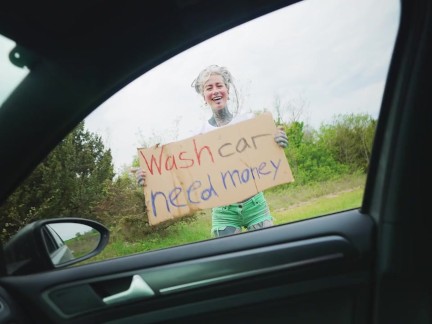 Wash car
need money